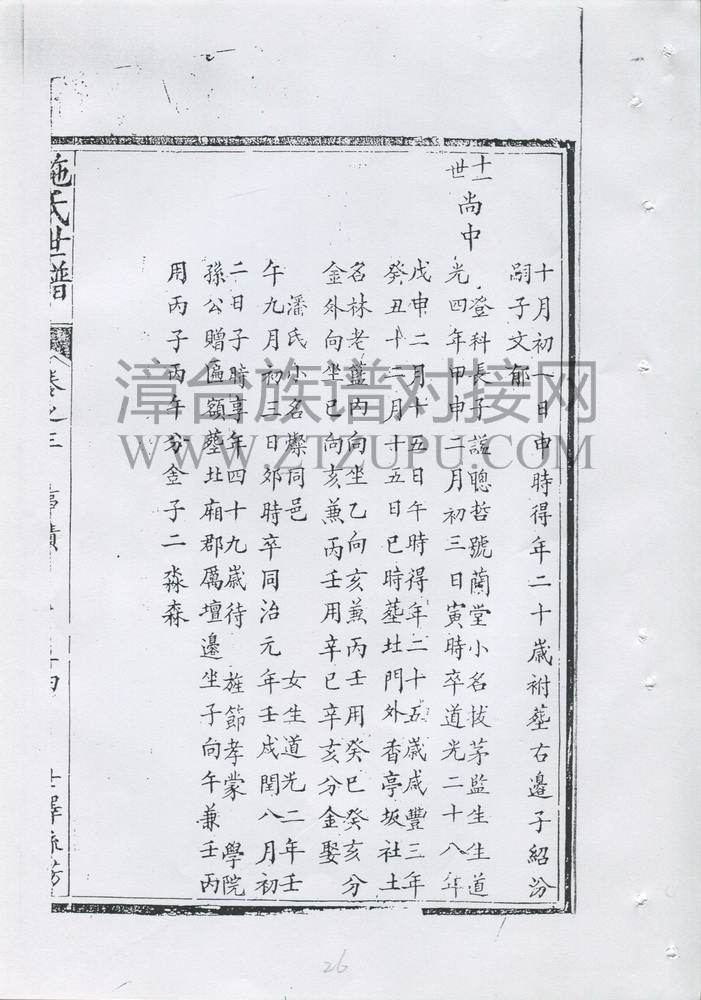 十月初一日申時得年二十歲祔塟右邊子紹汾
嗣子文郁
十一世
尚中
登科長子謚聰哲號蘭堂小名拔茅監生生道
光四年甲申二月初三日寅時卒道光二十八年
戊申二月十五日午時得年二十五歲咸豐三年
癸丑十二月十五日巳時塟北門外香亭坂社土
名林老藍內向坐乙向亥兼丙壬用癸巳癸亥分
金外向坐巳向亥兼丙壬用辛巳辛亥分金娶
潘氏小名燦同邑 女生道光二年壬
午九月初三日夘時卒同治元年壬戌閏八月初
二日子時享年四十九歲待 旌節孝蒙 學院
孫公贈匾額塟北廂郡厲壇邊坐子向午兼壬丙
用丙子丙午分金子二淼森
施氏世譜 卷之三 事蹟
漳台族谱对接网
WWW.ZTZUPU.COM
26